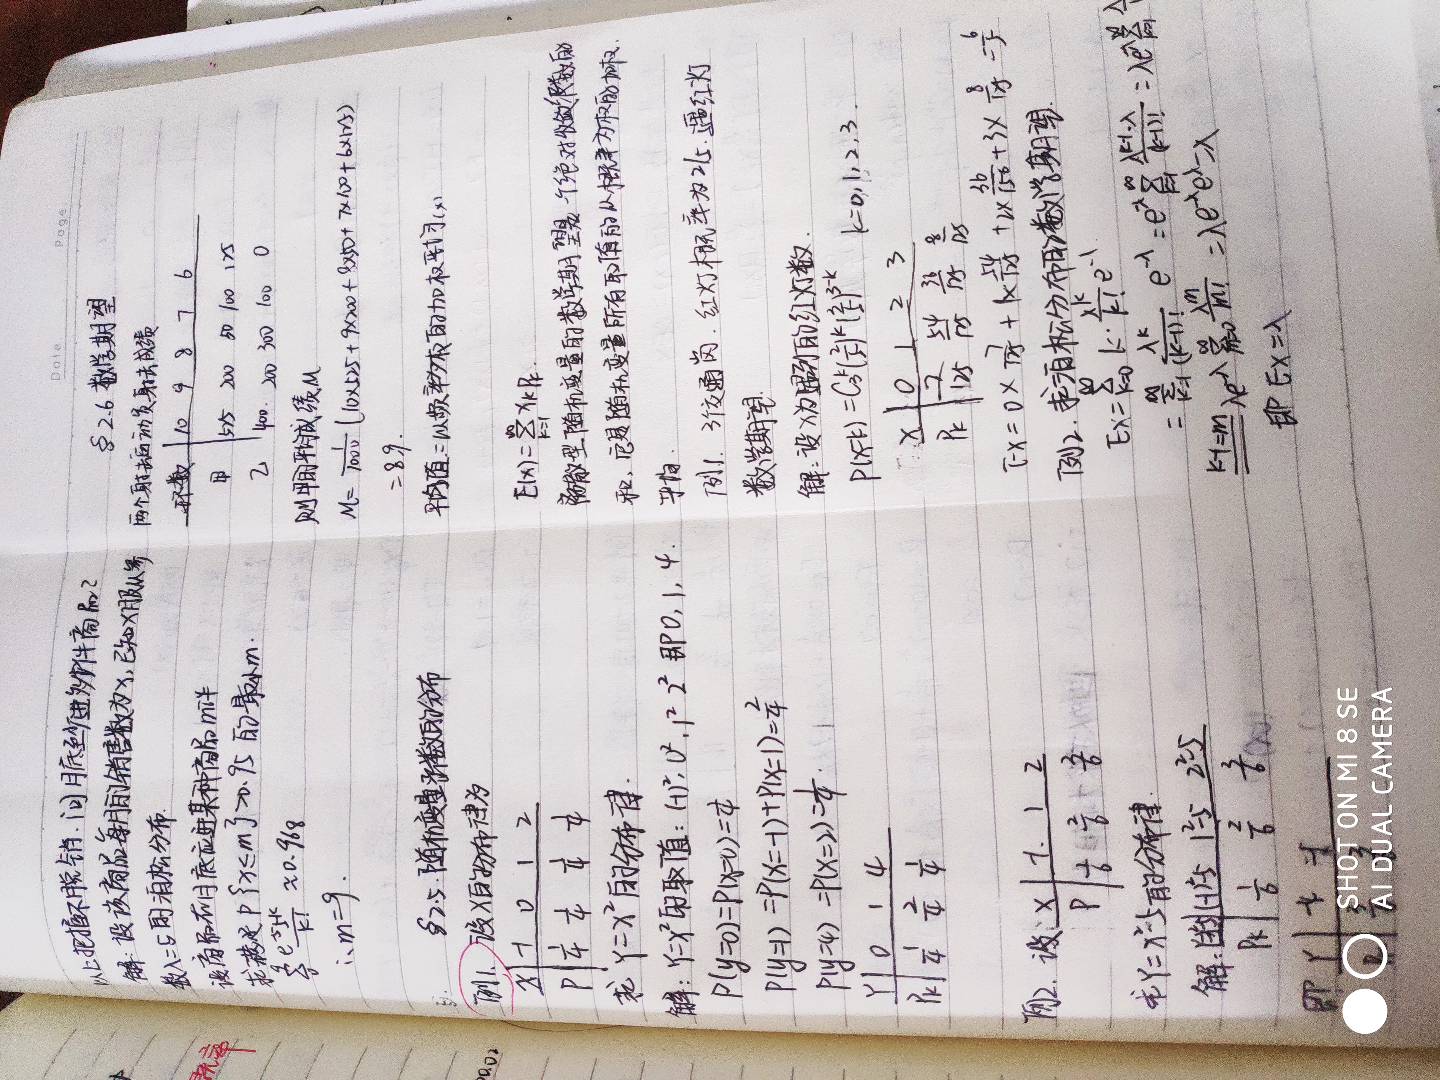 以上把握不脱销.问月底至少进多少件商品?
解:设该商品每月的销售数为X,已知X服从参
数λ=5的泊松分布.
设商店在月底应进某种商品m件
求满足P{X≤m}>0.95的最小m.
9 Σ 0 e^-5 5^k / k! ≈0.968
∴m=9.
§2.5.随机变量函数的分布
例1. 设X的分布律为
X -1 0 1 2
P 1/4 1/4 1/4 1/4
求Y=X²的分布律.
解:Y=X²的取值:(-1)²,0²,1²2²即0,1,4.
P(y=0)=P(x=0)=1/4
P(y=1)=P(x=-1)+P(x=1)=2/4
P(y=4)=P(x=2)=1/4.
Y 0 1 4
Pk 1/4 2/4 1/4
例2.设: X -1. 1 2
P 1/6 2/6 3/6
求Y=X²-5的分布律.
解: (-1)²-5 1²-5 2²-5
Pk 1/6 2/6 3/6
即 Y -4 -1
Date Page
§2.6 数学期望
两个射击运动员射击成绩
环数 10 9 8 7 6
甲 525 200 50 100 125
乙 400. 200 300 100 0
则甲的平均成绩M
M=1/1000(10×525+9×200+8×50+7×100+6×125)
=8.9.
平均值=以频率为权的加权平均(x)
E(x)=∞ Σ k=1 xkPk.
离散型随机变量的数学期望是一个绝对收敛级数的
和,它是随机变量所有取值的以概率为权的加权.
平均.
例1. 3个交通岗.红灯概率为2/5.遇红灯
数学期望.
解:设X为遇到的红灯数.
P(x=k)=C3^k(2/5)^k(3/5)^3-k k=0,1,2,3.
X 0 1 2 3
Pk 7/125 54/125 36/125 8/125
EX=0×7/125+1×54/125+2×36/156+3×8/125=6/5
例2.求泊松分布的数学期望.
EX=∞ Σ k=0 k·λ^k/k! e^-1
=∞ Σ k=1 λ^k/(k-1)! e^-λ=e^-λ ∞ Σ k=1 λ^k-1·λ/(k-1)!=λe^-λ ∞ Σ k=1
k-1=m λe^-λ ∞ Σ m=0 λ^m/m! =λe^-λe^λ=λ
即 EX=λ
SHOT ON MI 8 SE
AI DUAL CAMERA